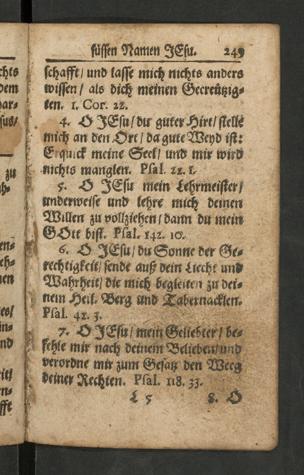 süssen Namen JEsu. 249
schafft/ und lasse mich nichts anders
wissen/ als dich meinen Gecreutzig-
ten. 1. Cor. 22.
4. O JEsu/ du guter Hirt/ stelle
mich an den Ort/ da gute Weyd ist:
Erquick meine Seel/ und mir wird
nichts manglen. Psal. 22. 1.
5. O JEsu mein Lehrmeister/
underweise und lehre mich deinen
Willen zu vollziehen/ dann du mein
GOtt bist. Psal. 142. 10.
6. O JEsu/ du Sonne der Ge-
rechtigkeit/ sende auß dein Liecht und
Wahrheit/ die mich begleiten zu dei-
nem Heil. Berg und Tabernacklen.
Psal. 42. 3.
7. O JEsu/ mein Geliebter/ be-
fehle mir nach deinem Belieben/ und
verordne mir zum Gesatz den Weeg
deiner Rechten. Psal. 118. 33.
L 5 8. O